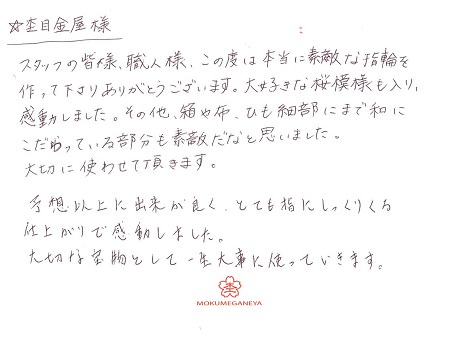 ☆杢目金屋様
スタッフの皆様、職人様、この度は本当に素敵な指輪を
作って下さりありがとうございます。大好きな桜模様も入り、
感動しました。その他、箱や布、ひも細部にまで和に
こだわっている部分も素敵だなと思いました。
大切に使わせて頂きます。
予想以上に出来が良く、とても指にしっくりくる
仕上がりで感動しました。
大切な宝物として一生大事に使っていきます。
杢
MOKUMEGANEYA